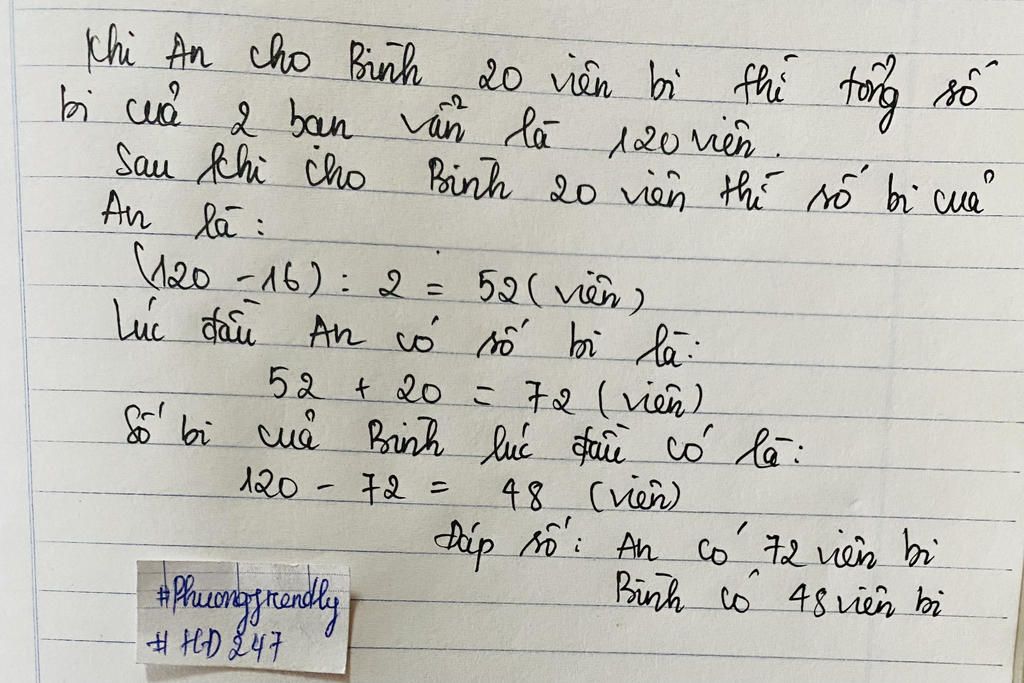 Khi An cho Bình 20 viên bi thì tổng số
bi của 2 bạn vẫn là 120 viên.
Sau khi cho Bình 20 viên thì số bi của
An là:
(120 - 16) : 2 = 52 (viên)
Lúc đầu An có số bi là:
52 + 20 = 72 (viên)
Số bi của Bình lúc đầu có là:
120 - 72 = 48 (viên)
Đáp số: An có 72 viên bi
Bình có 48 viên bi
#Phuongfrendly
#HD247